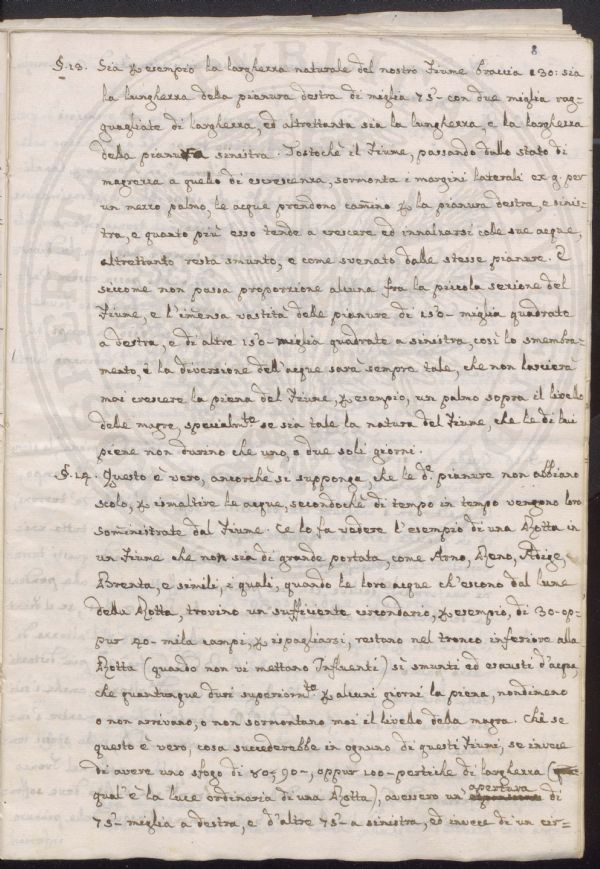 8
§. 13. Sia p esempio la larghezza naturale del nostro Fiume braccia 130: sia
la lunghezza della pianura destra di miglia 75 - con due miglia rag=
guagliate di larghezza, ed altrettanta sia la lunghezza, e la larghezza
della pianura sinistra. Tostochè il Fiume, passando dallo stato di
magrezza a quello di escrescenza, sormonta i margini laterali ex g. per
un mezzo palmo, le acque prendono camino p la pianura destra, e sinis=
tra, e quanto più esso tende a crescere ed innalzarsi colle sue acque,
altrettanto resta smunto, e come svenato dalle stesse pianure. E
siccome non passa proporzione alcuna fra la piccola sezione del
Fiume, e l'imensa vastità delle pianure di 150 - miglia quadrate
a destra, e di altre 150 - miglia quadrate a sinistra, così lo smembra=
mento, e la diversione dell'acque sarà sempre tale, che non lascierà
mai crescere la piena del Fiume, p esempio, un palmo sopra il livello
delle magre, specialmte se sia tale la natura del Fiume, che le di lui
piene non durino che uno, o due soli giorni.
§. 14. Questo è vero, ancorchè si supponga che le de pianure non abbiano
scolo, p ismaltire le acque, secondochè di tempo in tempo vengono loro
somministrate dal Fiume. Ce lo fa vedere l'esempio di una Rotta in
un Fiume che non sia di grande portata, come Arno, Reno, Adige,
Brenta, e simili, i quali, quando le loro acque ch'escono dal lume
della Rotta, trovino un sufficiente circondario, p esempio, di 30 - op=
pur 40 - mila campi, p ispagliarsi, restano nel tronco inferiore alla
Rotta (quando non vi mettano Influenti) sì smunti ed esausti d'acqua,
che quantunque duri superiormte p alcuni giorni la piena, nondimeno
o non arrivano, o non sormontano mai il livello della magra. Chè se
questo è vero, cosa succederebbe in ognuno di questi Fiumi, se invece
di avere uno sfogo di 80, 90 -, oppur 100 - pertiche di larghezza (
qual'è la luce ordinaria di una Rotta), avessero un' apertura di
75 - miglia a destra, e d'altre 75 - a sinistra, ed invece di un cir=